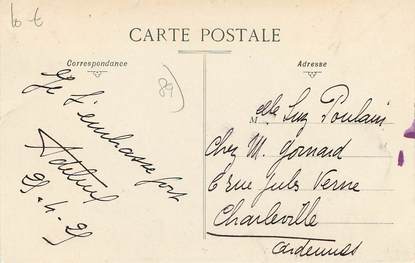 10 €
CARTE POSTALE
Correspondance
Adresse
89
Je t'embrasse fort
25-4-25
Melle Luz Poulain
Chez M. Gornard
6 rue Jules Verne
Charleville
Ardennes